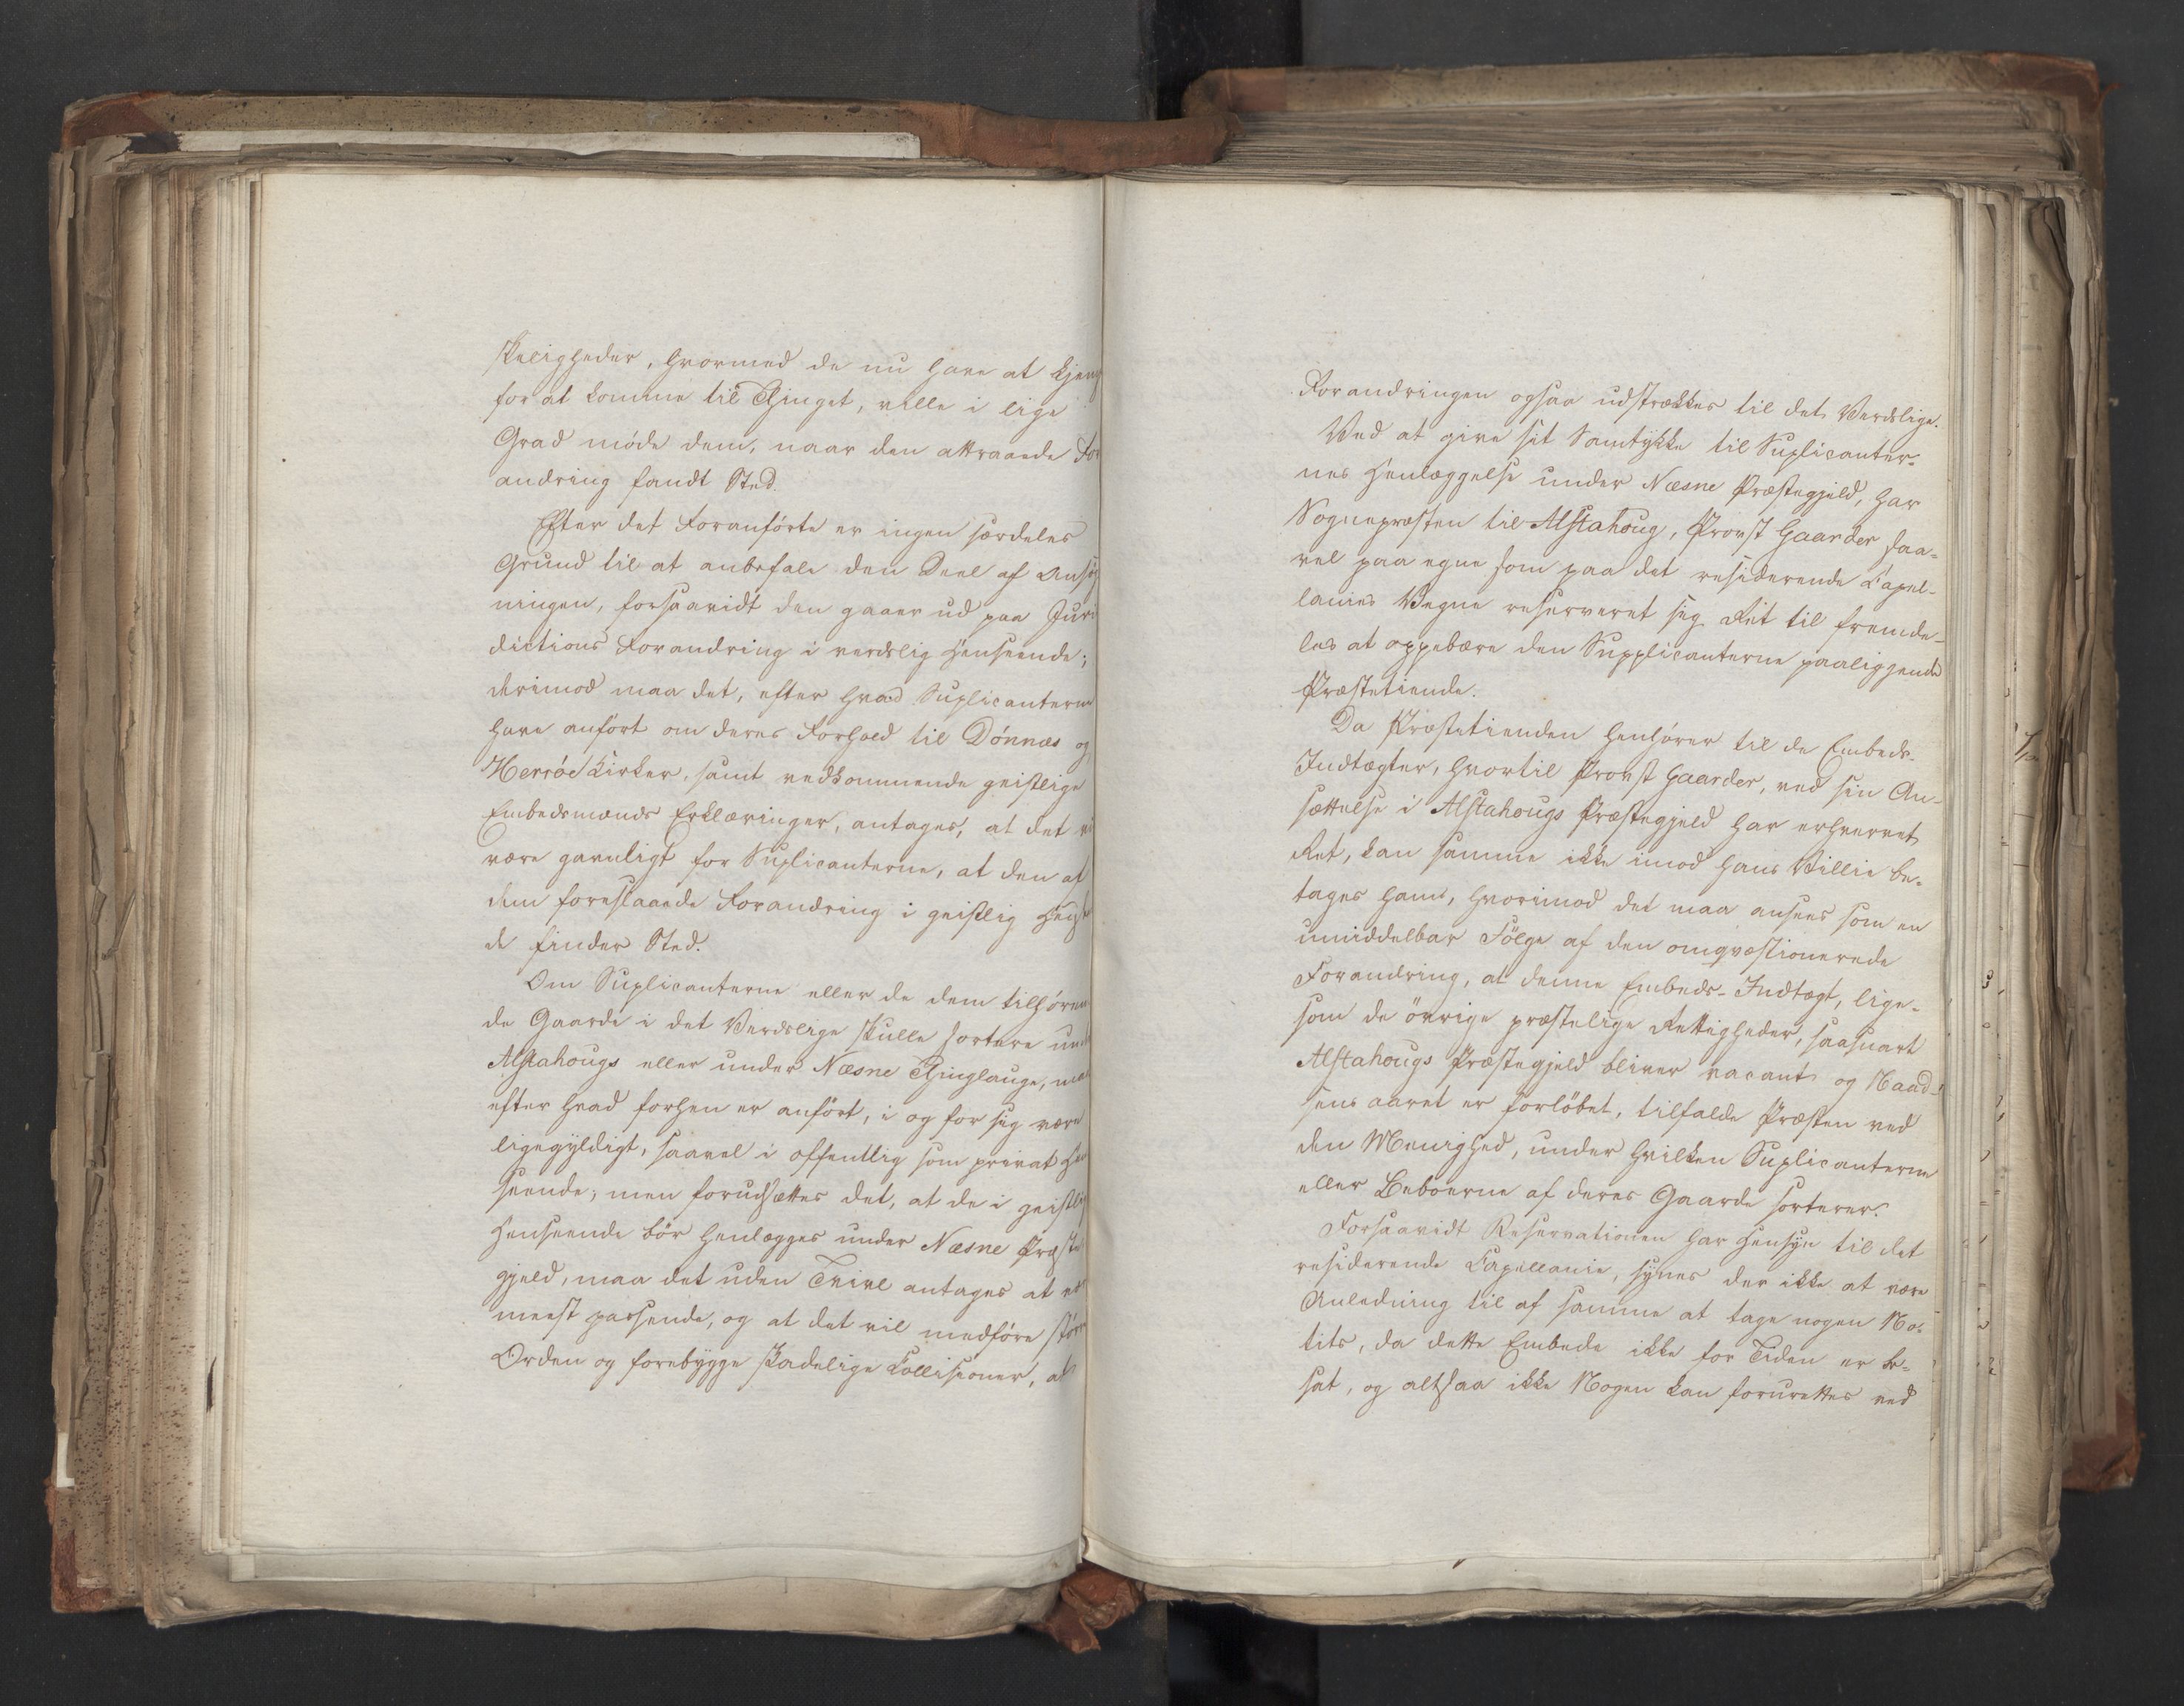 skeligheder, hvormed de nu have at kjem
for at komme til Thinget, ville i lige
Grad møde dem, naar den attraaede For
andring fandt Sted.
Efter det Foranførte er ingen særdeles
Grund til at anbefale den Deel af Ansøg
ningen, forsaavidt den gaaer ud paa Juris
dictions Forandring i verdslig Henseende;
derimod maa det, efter hvad Suplicanterne
have anført om deres Forhold til Dønnæs og
Herrøe Kirker, samt vedkommende geistlige
Embedsmænds Erklæringer, antages, at det vi
være gavnligt for Suplicanterne, at den af
dem foreslaaede Forandring i geistlig Hens
de finder Sted.
Om Suplicanterne eller de dem tilhøren
de Gaarde i det Verdslige skulle sortere und
Alstahougs eller under Næsne Thinglaug, ma
efter hvad forhen er anført, i og for sig være
ligegyldigt, saavel i offentlig som privat Hen
seende; men forudsættes det, at de i geistlig
Henseende bør henlægges under Næsne Præste
gjeld, maa det uden Tvivl antages at væ
meest passende, og at det vil medføre større
Orden og forebygge skadelige Collisioner, at
Forandringen ogsaa udstrækkes til det Verdslige.
Ved at give sit Samtykke til Suplicanter-
nes Henlæggelse under Næsne Præstegjeld, har
Sognepræsten til Alstahoug, Provst Gaarder saa-
vel paa egne som paa det residerende Capel-
lanies Vegne reserveret sig Ret til fremde-
les at oppebære den Supplicanterne paaliggende
Præstetiende.
Da Præstetienden henhører til de Embeds-
Indtægter, hvortil Provst Gaarder, ved sin An-
sættelse i Alstahougs Præstegjeld har erhvervet
Ret, kan samme ikke imod hans Villie be-
tages ham, hvorimod det maa ansees som en
umiddelbar Følge af den omqvæstionerede
Forandring, at denne Embeds-Indtægt, lige-
som de øvrige præstelige Rettigheder, saasnart
Alstahougs Præstegjeld bliver vacant og Naad-
sens aaret er forløbet, tilfalde Præsten ved
den Menighed, under hvilken Suplicanterne
eller Beboerne af deres Gaarde sorterer.
Forsaavidt Reservationen har Hensyn til det
residerende Capellanie, synes der ikke at være
Anledning til af samme at tage nogen No-
tits, da dette Embede ikke for Tiden er be-
sat, og altsaa ikke Nogen kan forurettes ved